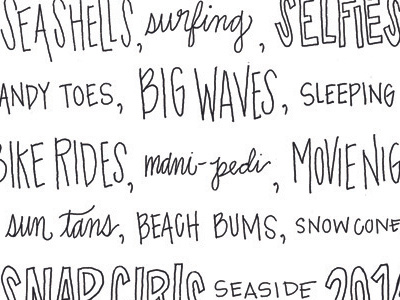 SEASHELLS, surfing, SELFIES
ANDY TOES, BIG WAVES, SLEEPING
BIKE RIDES, mani-pedi, MOVIE NIG
sun tans, BEACH BUMS, SNOW CONE
SNAP GIRLS SEASIDE 2014